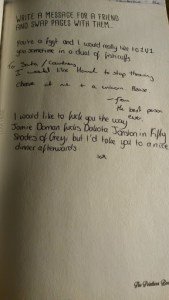 WRITE A MESSAGE FOR A FRIEND
AND SWAP PAGES WITH THEM...
You're a and I would really like to 1v1
you sometime in a dual of
To /
I would like to stop throwing
cheese at me + a unicorn. Please
- from
the best person
ever.
I would like to fuck you the way
Jamie Dornan fucks Dakota Johnson in Fifty
Shades of Grey, but I'd take you to a nice
dinner afterwards